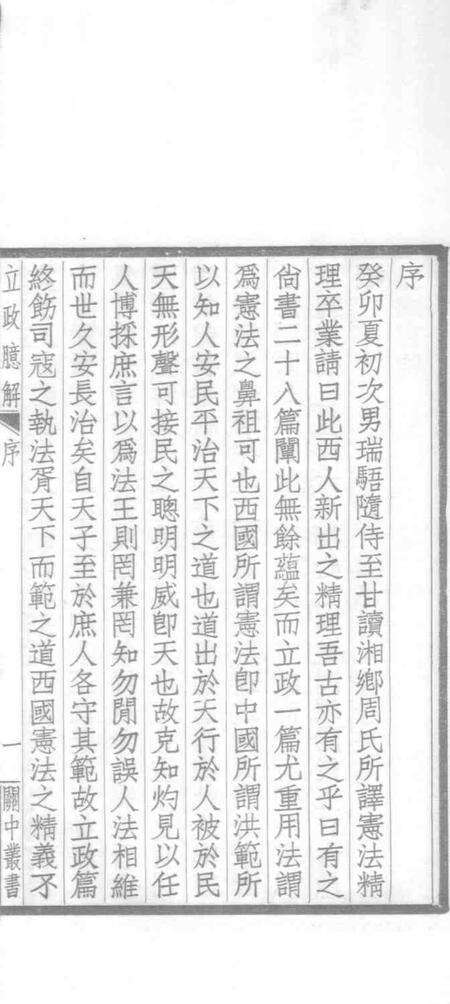 序
癸卯夏初次男瑞駬隨侍至甘讀湘鄉周氏所譯憲法精
理卒業請曰此西人新出之精理吾古亦有之乎曰有之
尙書二十八篇闡此無餘蘊矣而立政一篇尤重用法謂
爲憲法之鼻祖可也西國所謂憲法卽中國所謂洪範所
以知人安民平治天下之道也道出於天行於人被於民
天無形聲可接民之聰明明威卽天也故克知灼見以任
人博採庶言以爲法王則罔兼罔知勿閒勿誤人法相維
而世久安長治矣自天子至於庶人各守其範故立政篇
終飭司寇之執法胥天下而範之道西國憲法之精義不
立政臆解 序 一 關中叢書